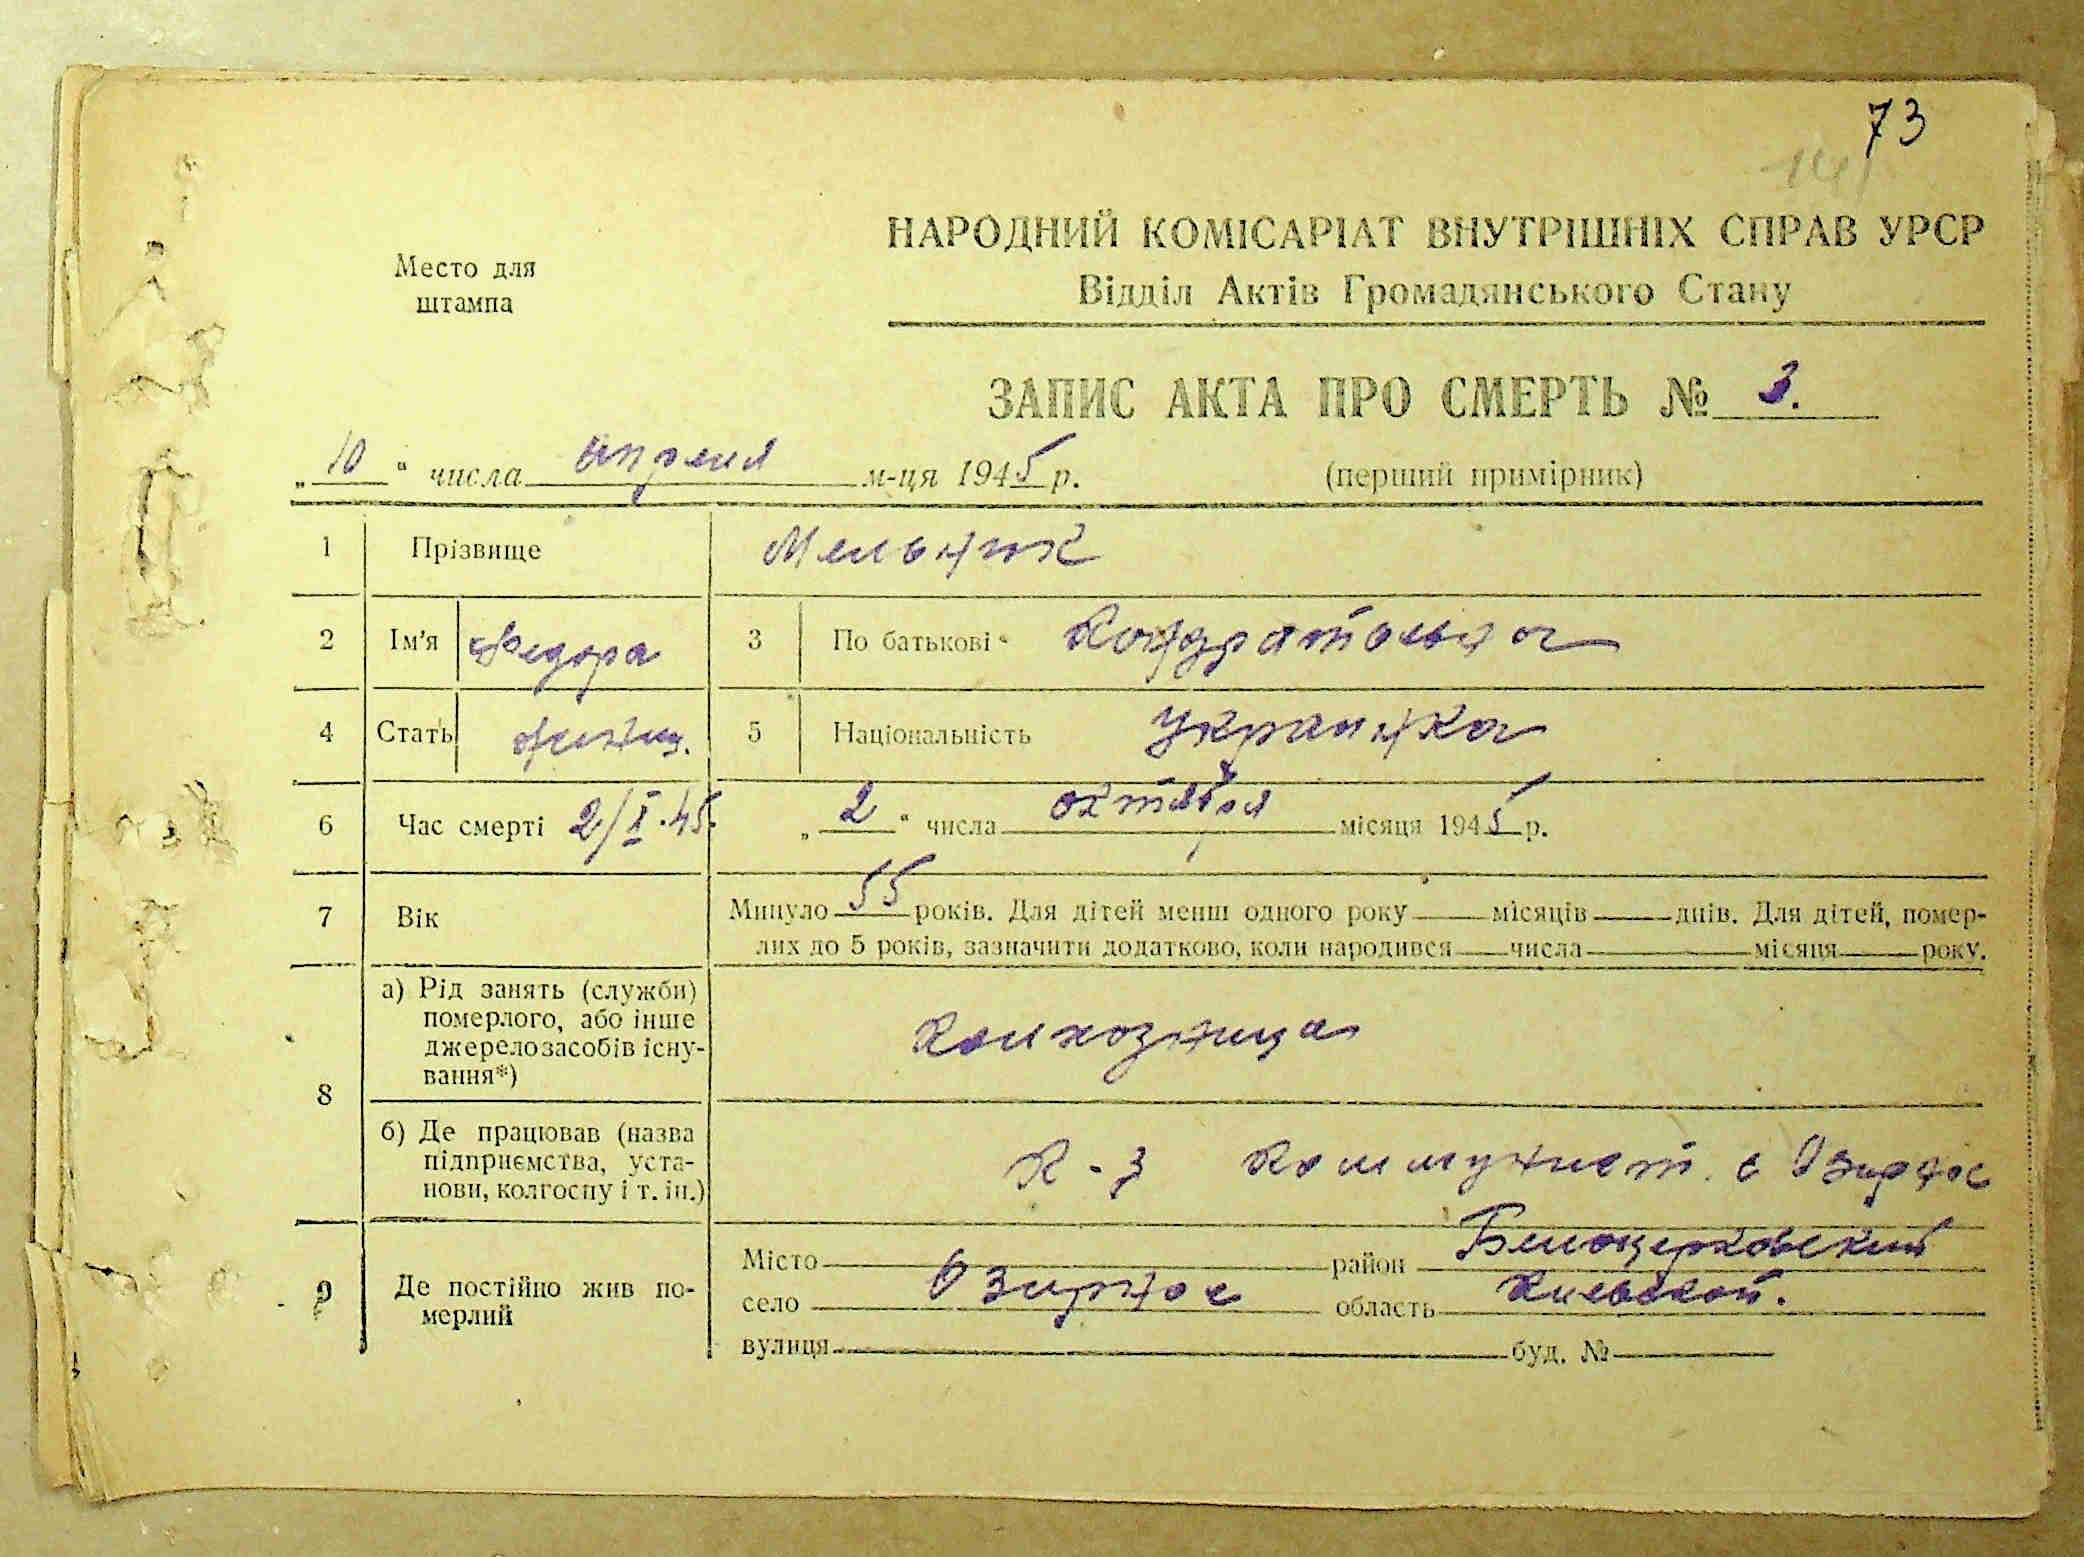 73
Место для
штампа
НАРОДНИЙ КОМІСАРІАТ ВНУТРІШНІХ СПРАВ УРСР
Відділ Актів Громадянського Стану
ЗАПИС АКТА ПРО СМЕРТЬ № 3.
„10“ числа апреля м-ця 1945 р. (перший примірник)
1 Прізвище Мельник
2 Ім'я Федора 3 По батькові Кондратовна
4 Стать женщ. 5 Національність Украинка
6 Час смерті 2/X.45. „2“ числа октября місяця 1945 р.
7 Вік Минуло 55 років. Для дітей менш одного року місяців днів. Для дітей, помер-
лих до 5 років, зазначити додатково, коли народився числа місяця року.
8 а) Рід занять (служби)
померлого, або інше
джерело засобів існу-
вання*) Колхозница
б) Де працював (назва
підприємства, уста-
нови, колгоспу і т. ін.) К-з Коммунист с Озирное
9 Де постійно жив по-
мерлий
Місто район Белоцерковский
село Озирное область Киевской.
вулиця буд. №